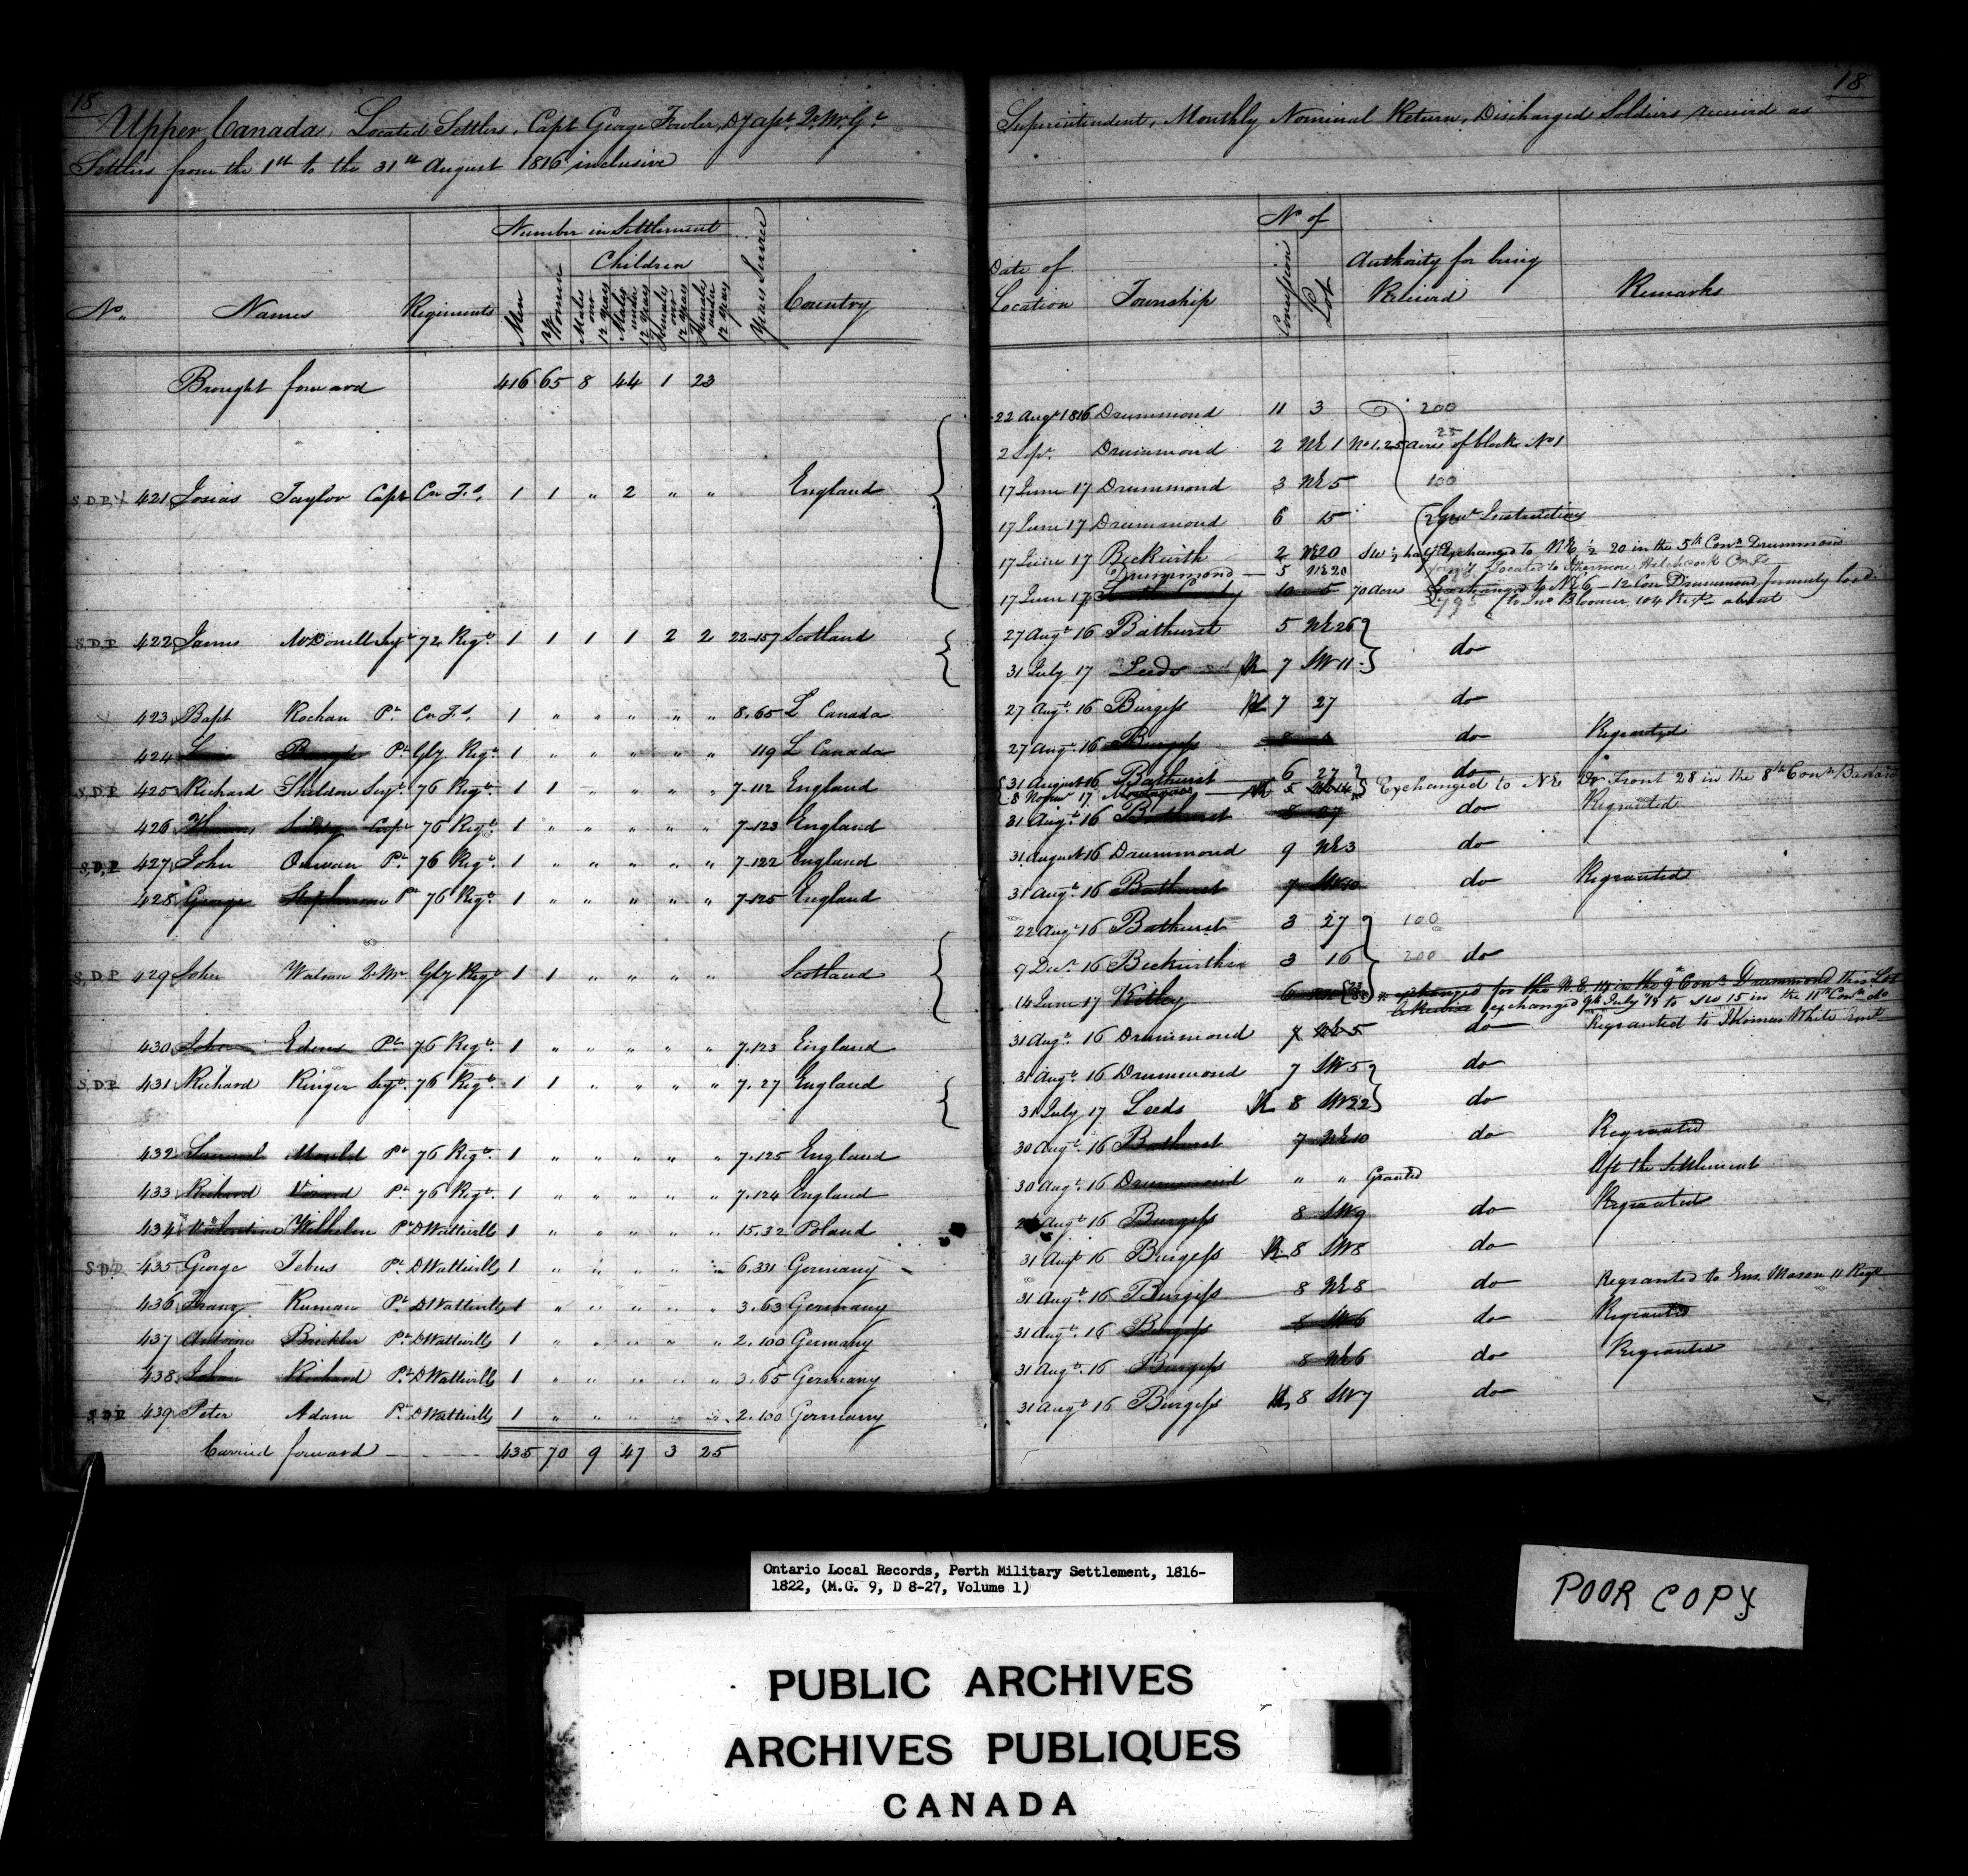 18
Upper Canada, Located Settlers, Capt George Fowler, Dy Apt. Q. Mr. Gl
Settlers from the 1st to the 31st August 1816 inclusive
Number in Settlement
Children
No. Names Regiments Men Women Males over 12 years Males under 12 years Females over 12 years Females under 12 years Years Service Country
Brought forward 416 65 8 44 1 23
S.D.P. 421 Josias Taylor Capt Cn F.s 1 1 " 2 " " England
S.D.P. 422 James McDonell Sergt 72 Regt. 1 1 1 1 2 2 22-157 Scotland
423 Bapt Rochan Pt. Cn F.s 1 " " " " " 8.65 L Canada
424 Pt Gly Regt. 1 " " " " " 119 L Canada
S.D.P. 425 Richard Sheldon Sergt. 76 Regt. 1 1 " " " " 7-112 England
426 Thomas Corpl 76 Regt. 1 " " " " " 7-123 England
S.D.P. 427 John Pt 76 Regt. 1 " " " " " 7-122 England
428 George Stephenson Pt 76 Regt. 1 " " " " " 7-125 England
S.D.P. 429 John Watson Q.Mr Gly Regt 1 1 " " " " Scotland
430 John Edens Pt. 76 Regt. 1 " " " " " 7.123 England
S.D.P. 431 Richard Ringer Sergt. 76 Regt. 1 1 " " " " 7.27 England
432 Samuel Pt 76 Regt. 1 " " " " " 7.125 England
433 Richard Pt. 76 Regt. 1 " " " " " 7.124 England
434 Wilhelm Pt DWattvills 1 " " " " " 15.32 Poland
S.D.P. 435 George Tebus Pt. DWattvills 1 " " " " " 6.331 Germany
436 Franz Ruman Pt. DWattvills 1 " " " " " 3.63 Germany
437 Antoine Pt. DWattvills 1 " " " " " 2.100 Germany
438 Richard Pt. DWattvills 1 " " " " " 3.65 Germany
S.D.P. 439 Peter Adam Pt. DWattvills 1 " " " " " 2.100 Germany
Carried forward 435 70 9 47 3 25
18
Superintendent, Monthly Nominal Return, Discharged Soldiers received as
No of
Date of Location Township Concession Lot Authority for being Received Remarks
22 Augt 1816 Drummond 11 3 200
2 Sepr. Drummond 2 NE 1 No 1.25 acres of block No 1
25
17 June 17 Drummond 3 NE 5 100
17 June 17 Drummond 6 15 Instructions
17 June 17 Beckwith 2 NE 20 SW ½ half Exchanged to NE ½ 20 in the 5th Conn Drummond
Drummond 5 NE 20 located to Hitchcock
17 June 17 10 5 70 acres Exchanged to NE 6 - 12 Con Drummond formerly locd
to Jno Bloomer 104 Regt
27 Augt 16 Bathurst 5 NE 26
do
31 July 17 Leeds R 7 SW 11
27 Augt. 16 Burgess R 7 27 do
27 Augt. 16 Burgess do Regranted
31 August 16 Bathurst 6 27 do
8 Novr 17 R 5 Exchanged to NE Do Front 28 in the 8th Conn
31 Augt. 16 Bathurst 8 27 do Regranted
31 August 16 Drummond 9 NE 3 do
31 Augt. 16 Bathurst 7 SW 10 do Regranted
22 Augt 16 Bathurst 3 27 100
9 Decr. 16 Beckwith 3 16 200 do
14 June 17 Kitley 6 exchanged for the N.E. 15 in the 9th Conn Drummond this Lot
exchanged 9th July to SW 15 in the 11th Conn do
31 Augt. 16 Drummond 7 NE 5 do Regranted to Thomas White
31 Augt. 16 Drummond 7 SW 5 do
31 July 17 Leeds R 8 SW 22 do
30 Augt. 16 Bathurst 7 NE 10 do Regranted
30 Augt. 16 Drummond " " Granted Left the Settlement
Augt 16 Burgess 8 SW 9 do Regranted
31 Augt 16 Burgess R 8 SW 8 do
31 Augt. 16 Burgess 8 NE 8 do Regranted to Ens. Mason 11 Regt
31 Augt. 16 Burgess 8 SW 6 do Regranted
31 Augt. 16 Burgess 8 NE 6 do Regranted
31 Augt 16 Burgess R 8 SW 7 do
Ontario Local Records, Perth Military Settlement, 1816-
1822, (M.G. 9, D 8-27, Volume 1)
POOR COPY
PUBLIC ARCHIVES
ARCHIVES PUBLIQUES
CANADA